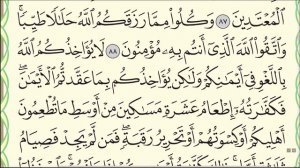 ٱلْمُعْتَدِينَ ٨٧ وَكُلُوا۟ مِمَّا رَزَقَكُمُ ٱللَّهُ حَلَٰلًا طَيِّبًا ۚ
وَٱتَّقُوا۟ ٱللَّهَ ٱلَّذِىٓ أَنتُم بِهِۦ مُؤْمِنُونَ ٨٨ لَا يُؤَاخِذُكُمُ ٱللَّهُ
بِٱللَّغْوِ فِىٓ أَيْمَٰنِكُمْ وَلَٰكِن يُؤَاخِذُكُم بِمَا عَقَّدتُّمُ ٱلْأَيْمَٰنَ ۖ
فَكَفَّٰرَتُهُۥٓ إِطْعَامُ عَشَرَةِ مَسَٰكِينَ مِنْ أَوْسَطِ مَا تُطْعِمُونَ
أَهْلِيكُمْ أَوْ كِسْوَتُهُمْ أَوْ تَحْرِيرُ رَقَبَةٍ ۖ فَمَن لَّمْ يَجِدْ فَصِيَامُ